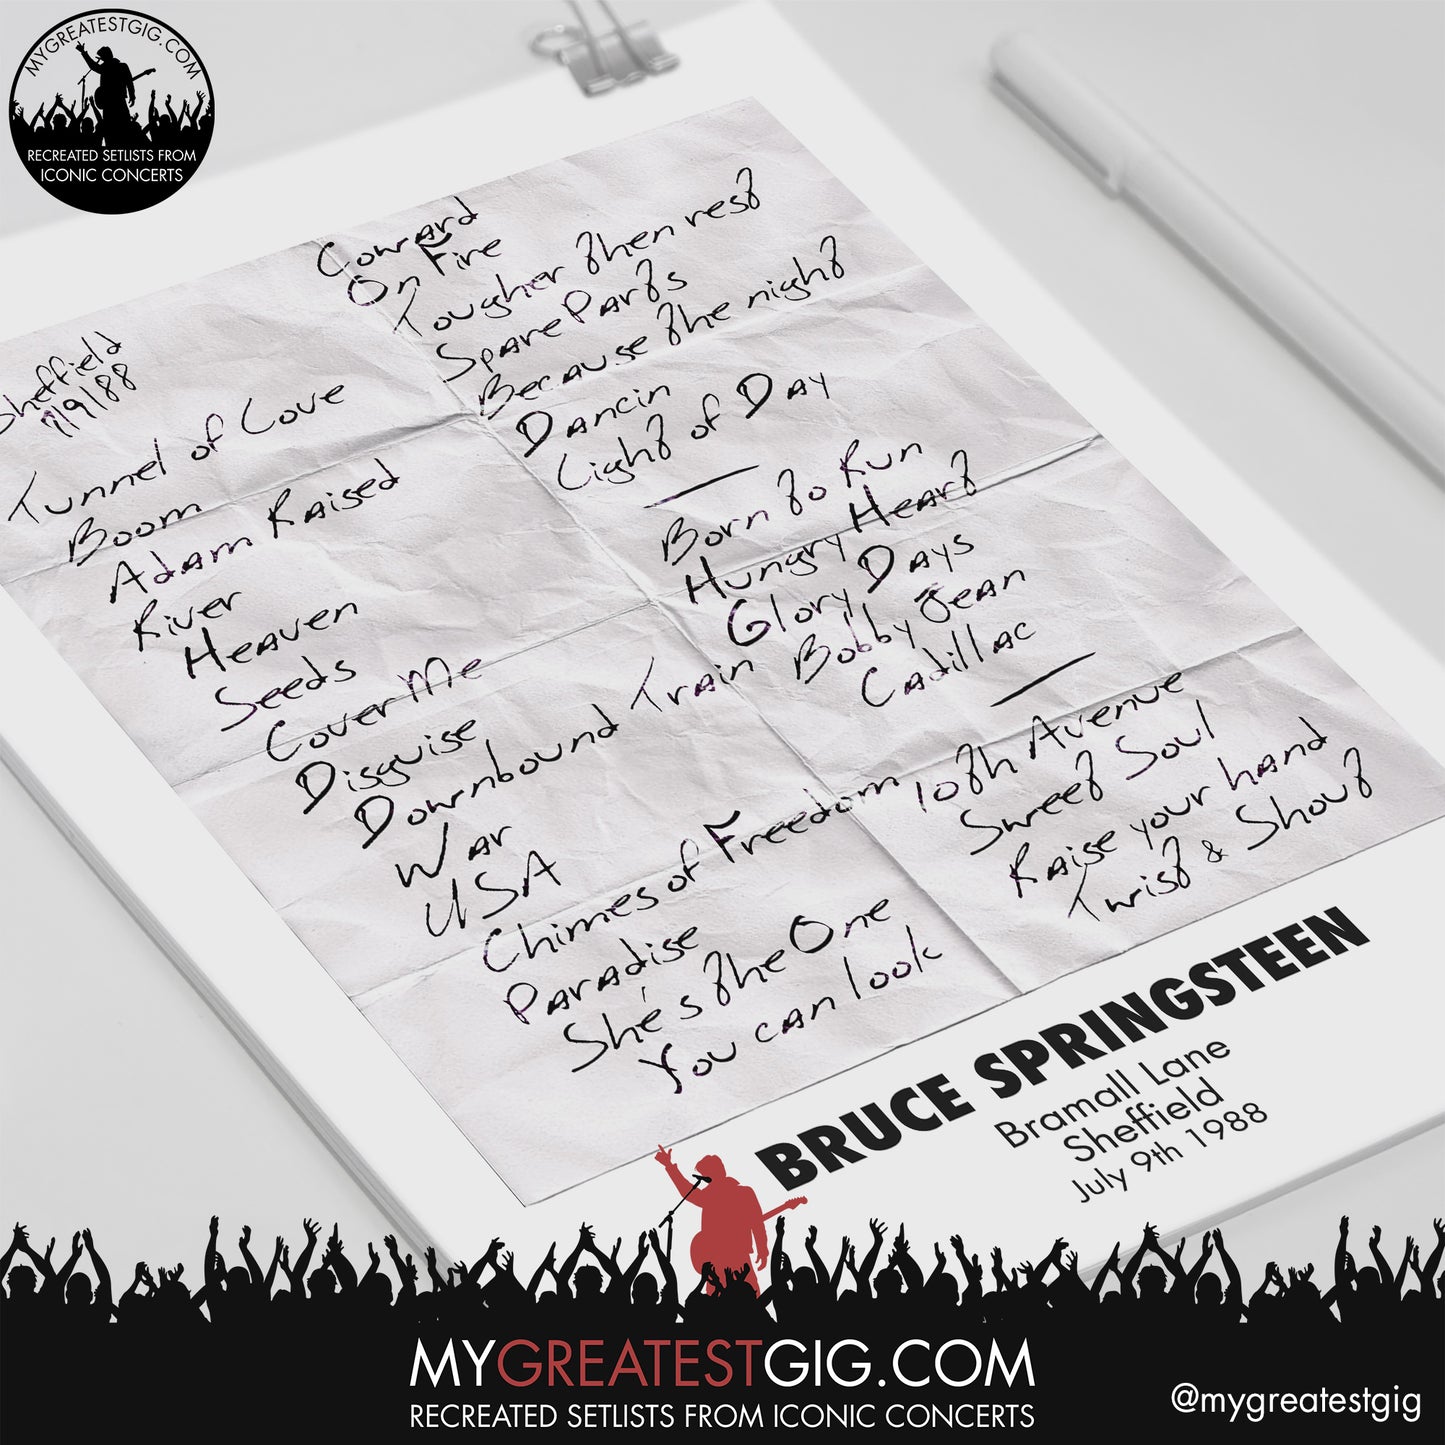 MYGREATESTGIG.COM
RECREATED SETLISTS FROM
ICONIC CONCERTS
Sheffield
7/9/88
Tunnel of Love
Boom
Adam Raised
River
Heaven
Seeds
Cover Me
Disguise
Downbound Train
War
USA
Chimes of Freedom
Paradise
She's the One
You can look
Coward
On Fire
Tougher then rest
Spare Parts
Because the night
Dancin
Light of Day
Born to Run
Hungry Heart
Glory Days
Bobby Jean
Cadillac
10th Avenue
Sweet Soul
Raise your hand
Twist & Shout
BRUCE SPRINGSTEEN
Bramall Lane
Sheffield
July 9th 1988
MYGREATESTGIG.COM
RECREATED SETLISTS FROM ICONIC CONCERTS
@mygreatestgig